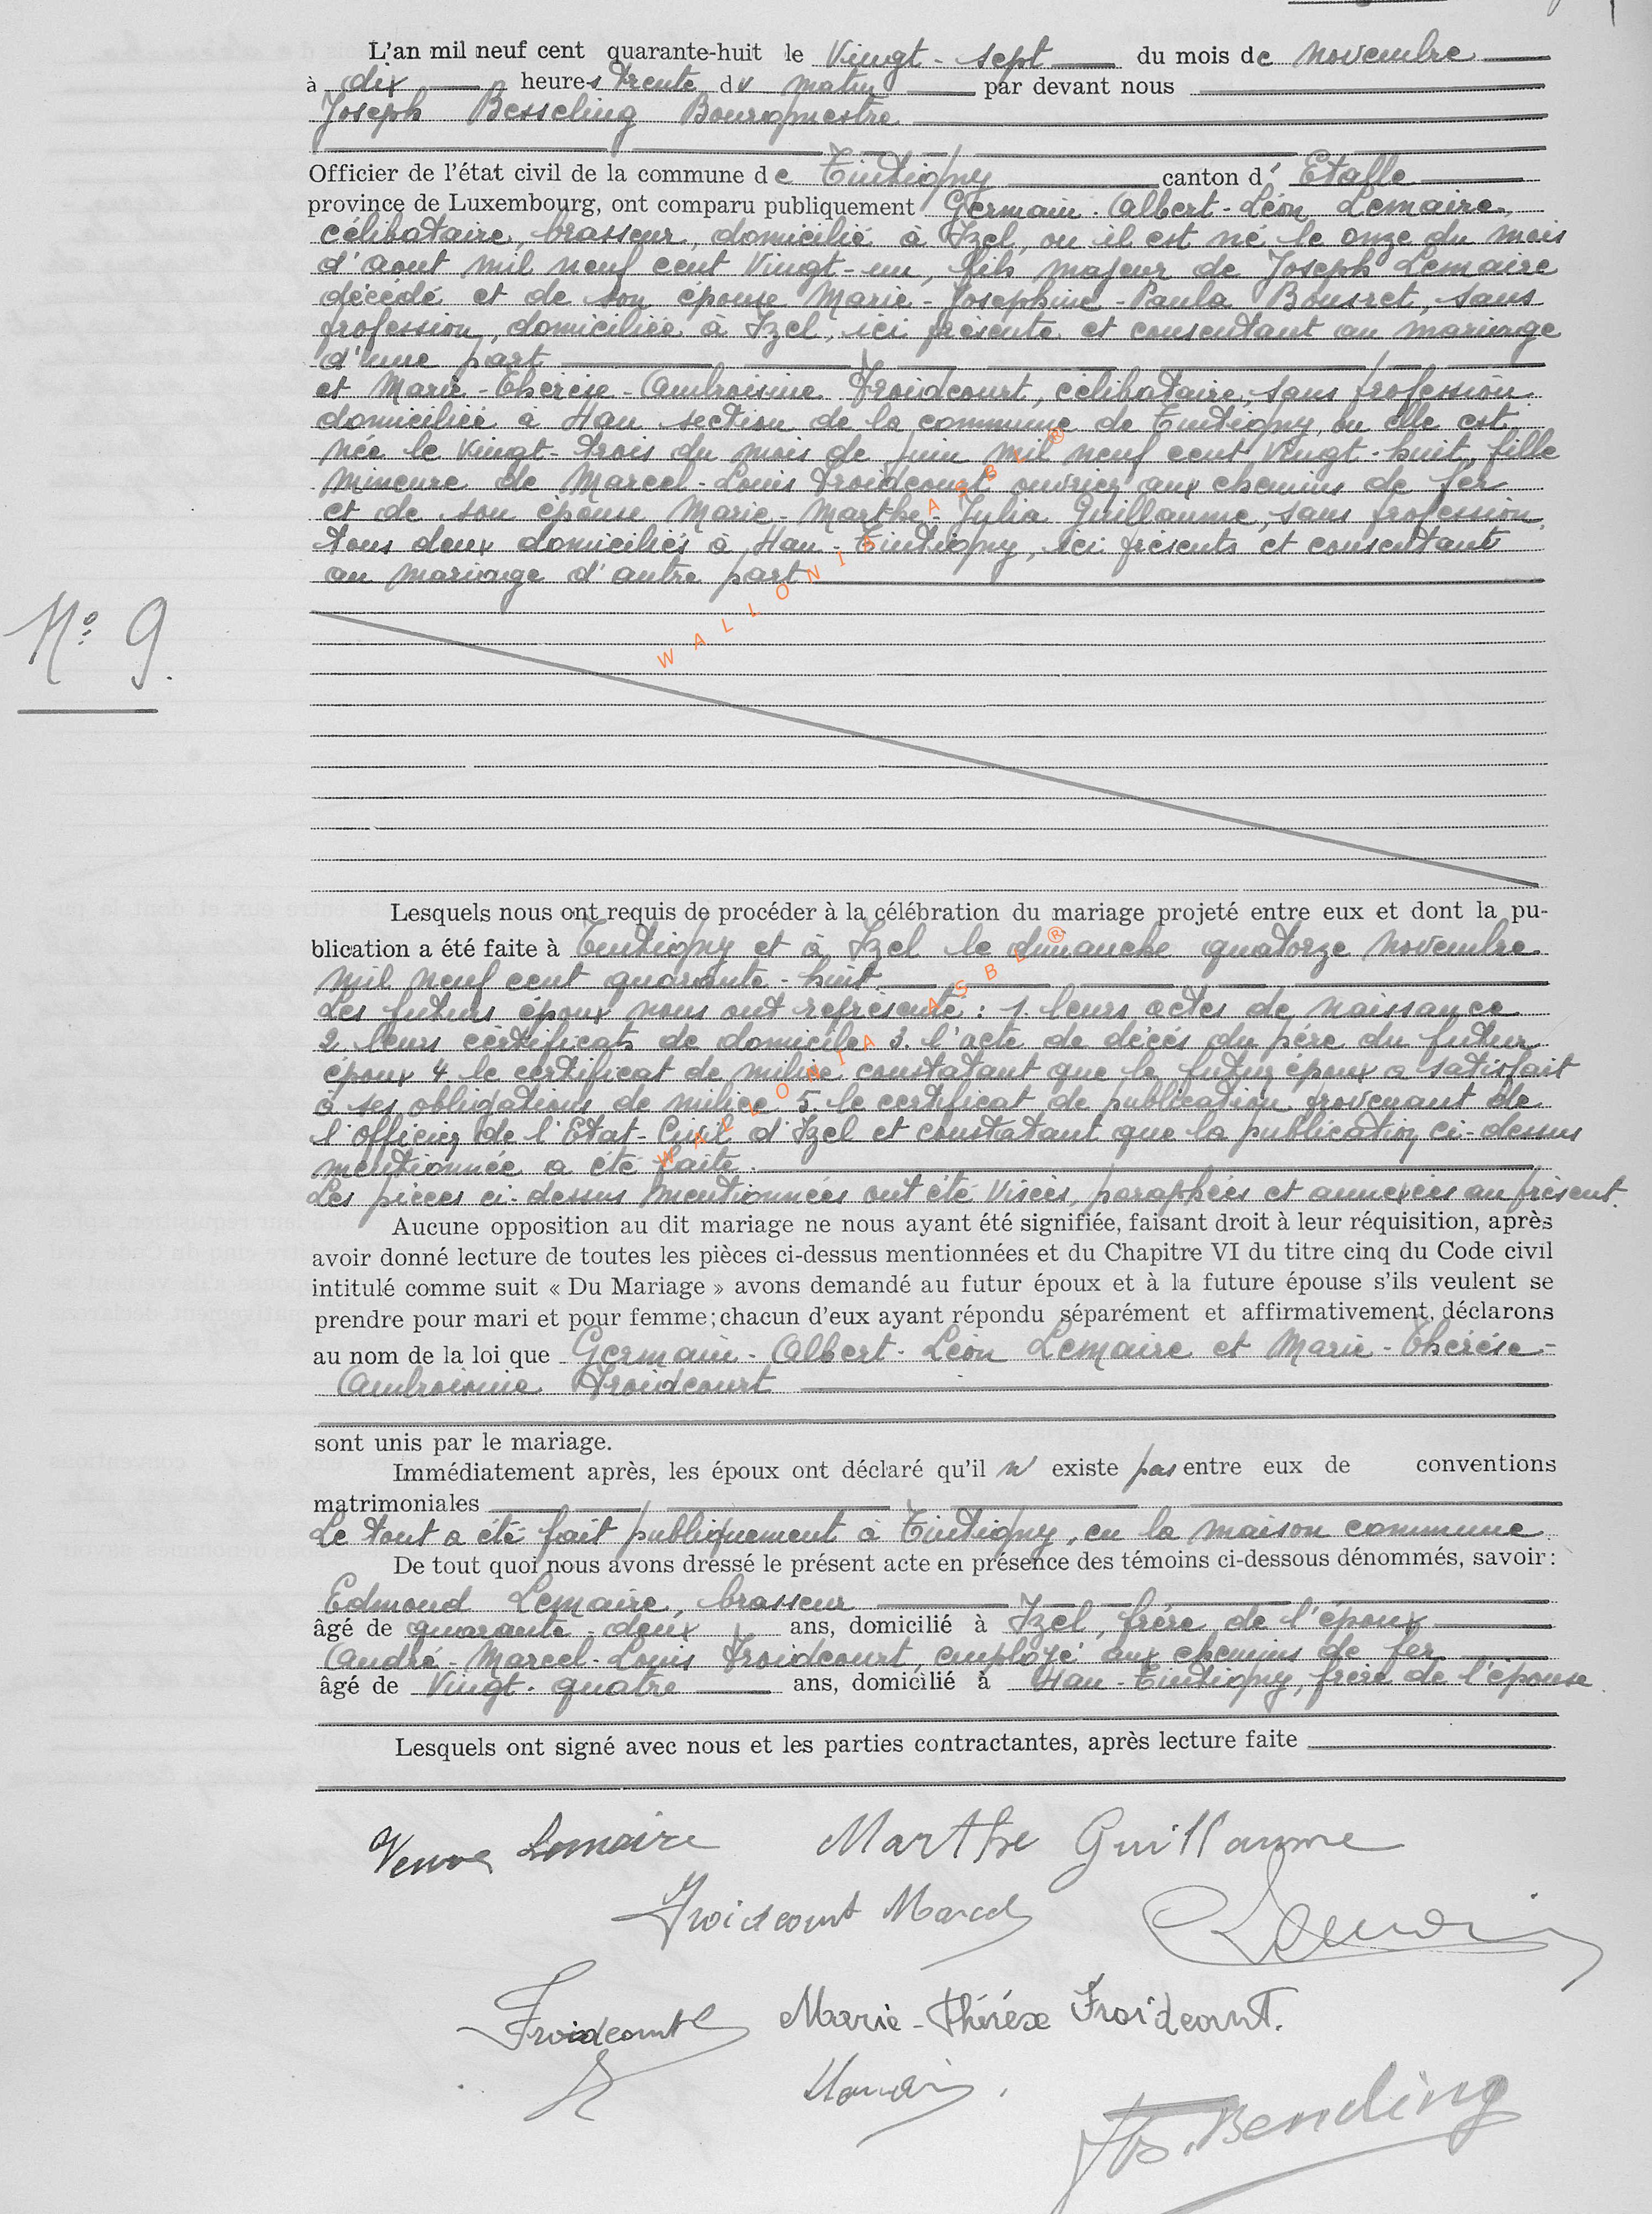 L'an mil neuf cent quarante-huit le Vingt-sept du mois de novembre
à dix heures trente du matin par devant nous
Joseph Besseling Bourgmestre
Officier de l'état civil de la commune de Tintigny canton d' Etalle
province de Luxembourg, ont comparu publiquement Germain-Albert-Léon Lemaire,
célibataire, brasseur, domicilié à Izel, ou il est né le onze du mois
d'aout mil neuf cent Vingt-un, fils majeur de Joseph Lemaire
décédé et de son épouse Marie-Josephine-Paula Bousret, sans
profession, domiciliée à Izel, ici présente et consentant au mariage
d'une part
et Marie-Thérèse-Ambroisine Froidcourt, célibataire, sans profession
domiciliée à Han section de la commune de Tintigny, ou elle est
née le Vingt-trois du mois de juin mil neuf cent Vingt-huit, fille
mineure de Marcel-Louis Froidcourt ouvrier aux chemins de fer
et de son épouse Marie-Marthe-Julia Guillaume, sans profession,
tous deux domiciliés à Han-Tintigny, ici présents et consentant
au mariage d'autre part
N° 9.
WALLONIA ASBL ®
Lesquels nous ont requis de procéder à la célébration du mariage projeté entre eux et dont la pu-
blication a été faite à Tintigny et à Izel le dimanche quatorze novembre
mil neuf cent quarante-huit
Les futurs époux nous ont représenté : 1. leurs actes de naissance
2 leurs certificats de domicile 3. l'acte de décès du père du futur
époux 4 le certificat de milice constatant que le futur époux a satisfait
à ses obligations de milice 5 le certificat de publication provenant de
l'Officier de l'Etat-Civil d'Izel et constatant que la publication ci-dessus
mentionnée a été faite.
WALLONIA ASBL ®
Les pièces ci-dessus mentionnées ont été visées, paraphées et annexées au présent.
Aucune opposition au dit mariage ne nous ayant été signifiée, faisant droit à leur réquisition, après
avoir donné lecture de toutes les pièces ci-dessus mentionnées et du Chapitre VI du titre cinq du Code civil
intitulé comme suit « Du Mariage » avons demandé au futur époux et à la future épouse s'ils veulent se
prendre pour mari et pour femme; chacun d'eux ayant répondu séparément et affirmativement, déclarons
au nom de la loi que Germain-Albert-Léon Lemaire et Marie-Thérèse-
Ambroisine Froidcourt
sont unis par le mariage.
Immédiatement après, les époux ont déclaré qu'il n' existe pas entre eux de conventions
matrimoniales
Le tout a été fait publiquement à Tintigny, en la maison commune
De tout quoi nous avons dressé le présent acte en présence des témoins ci-dessous dénommés, savoir :
Edmond Lemaire, brasseur
âgé de quarante-deux ans, domicilié à Izel, frère de l'époux
André-Marcel-Louis Froidcourt, employé aux chemins de fer
âgé de Vingt-quatre ans, domicilié à Han-Tintigny, frère de l'épouse
Lesquels ont signé avec nous et les parties contractantes, après lecture faite
Veuve Lemaire Marthe Guillaume
Froidcourt Marcel
Froidcourt Marie-Thérèse Froidcourt.